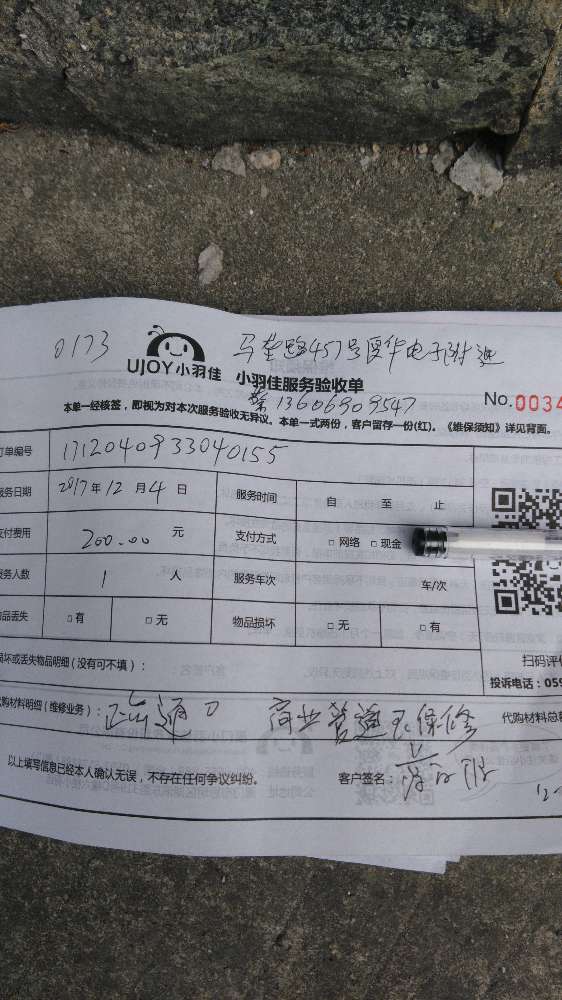 0173 马垄路457号厦华电子附近
UJOY小羽佳 小羽佳服务验收单
13606909547 No.0034
本单一经核签，即视为对本次服务验收无异议。本单一式两份，客户留存一份(红)。《维保须知》详见背面。
订单编号 1712040933040155
服务日期 2017年12月4日 服务时间 自 至 止
支付费用 200.00 元 支付方式 □网络 □现金
服务人数 1 人 服务车次 车/次
物品丢失 □有 □无 物品损坏 □无 □有
损坏或丢失物品明细（没有可不填）： 扫码评
投诉电话：059
代购材料明细（维修业务）： 疏通 商业管道不保修 代购材料总
以上填写信息已经本人确认无误，不存在任何争议纠纷。 客户签名：
12-